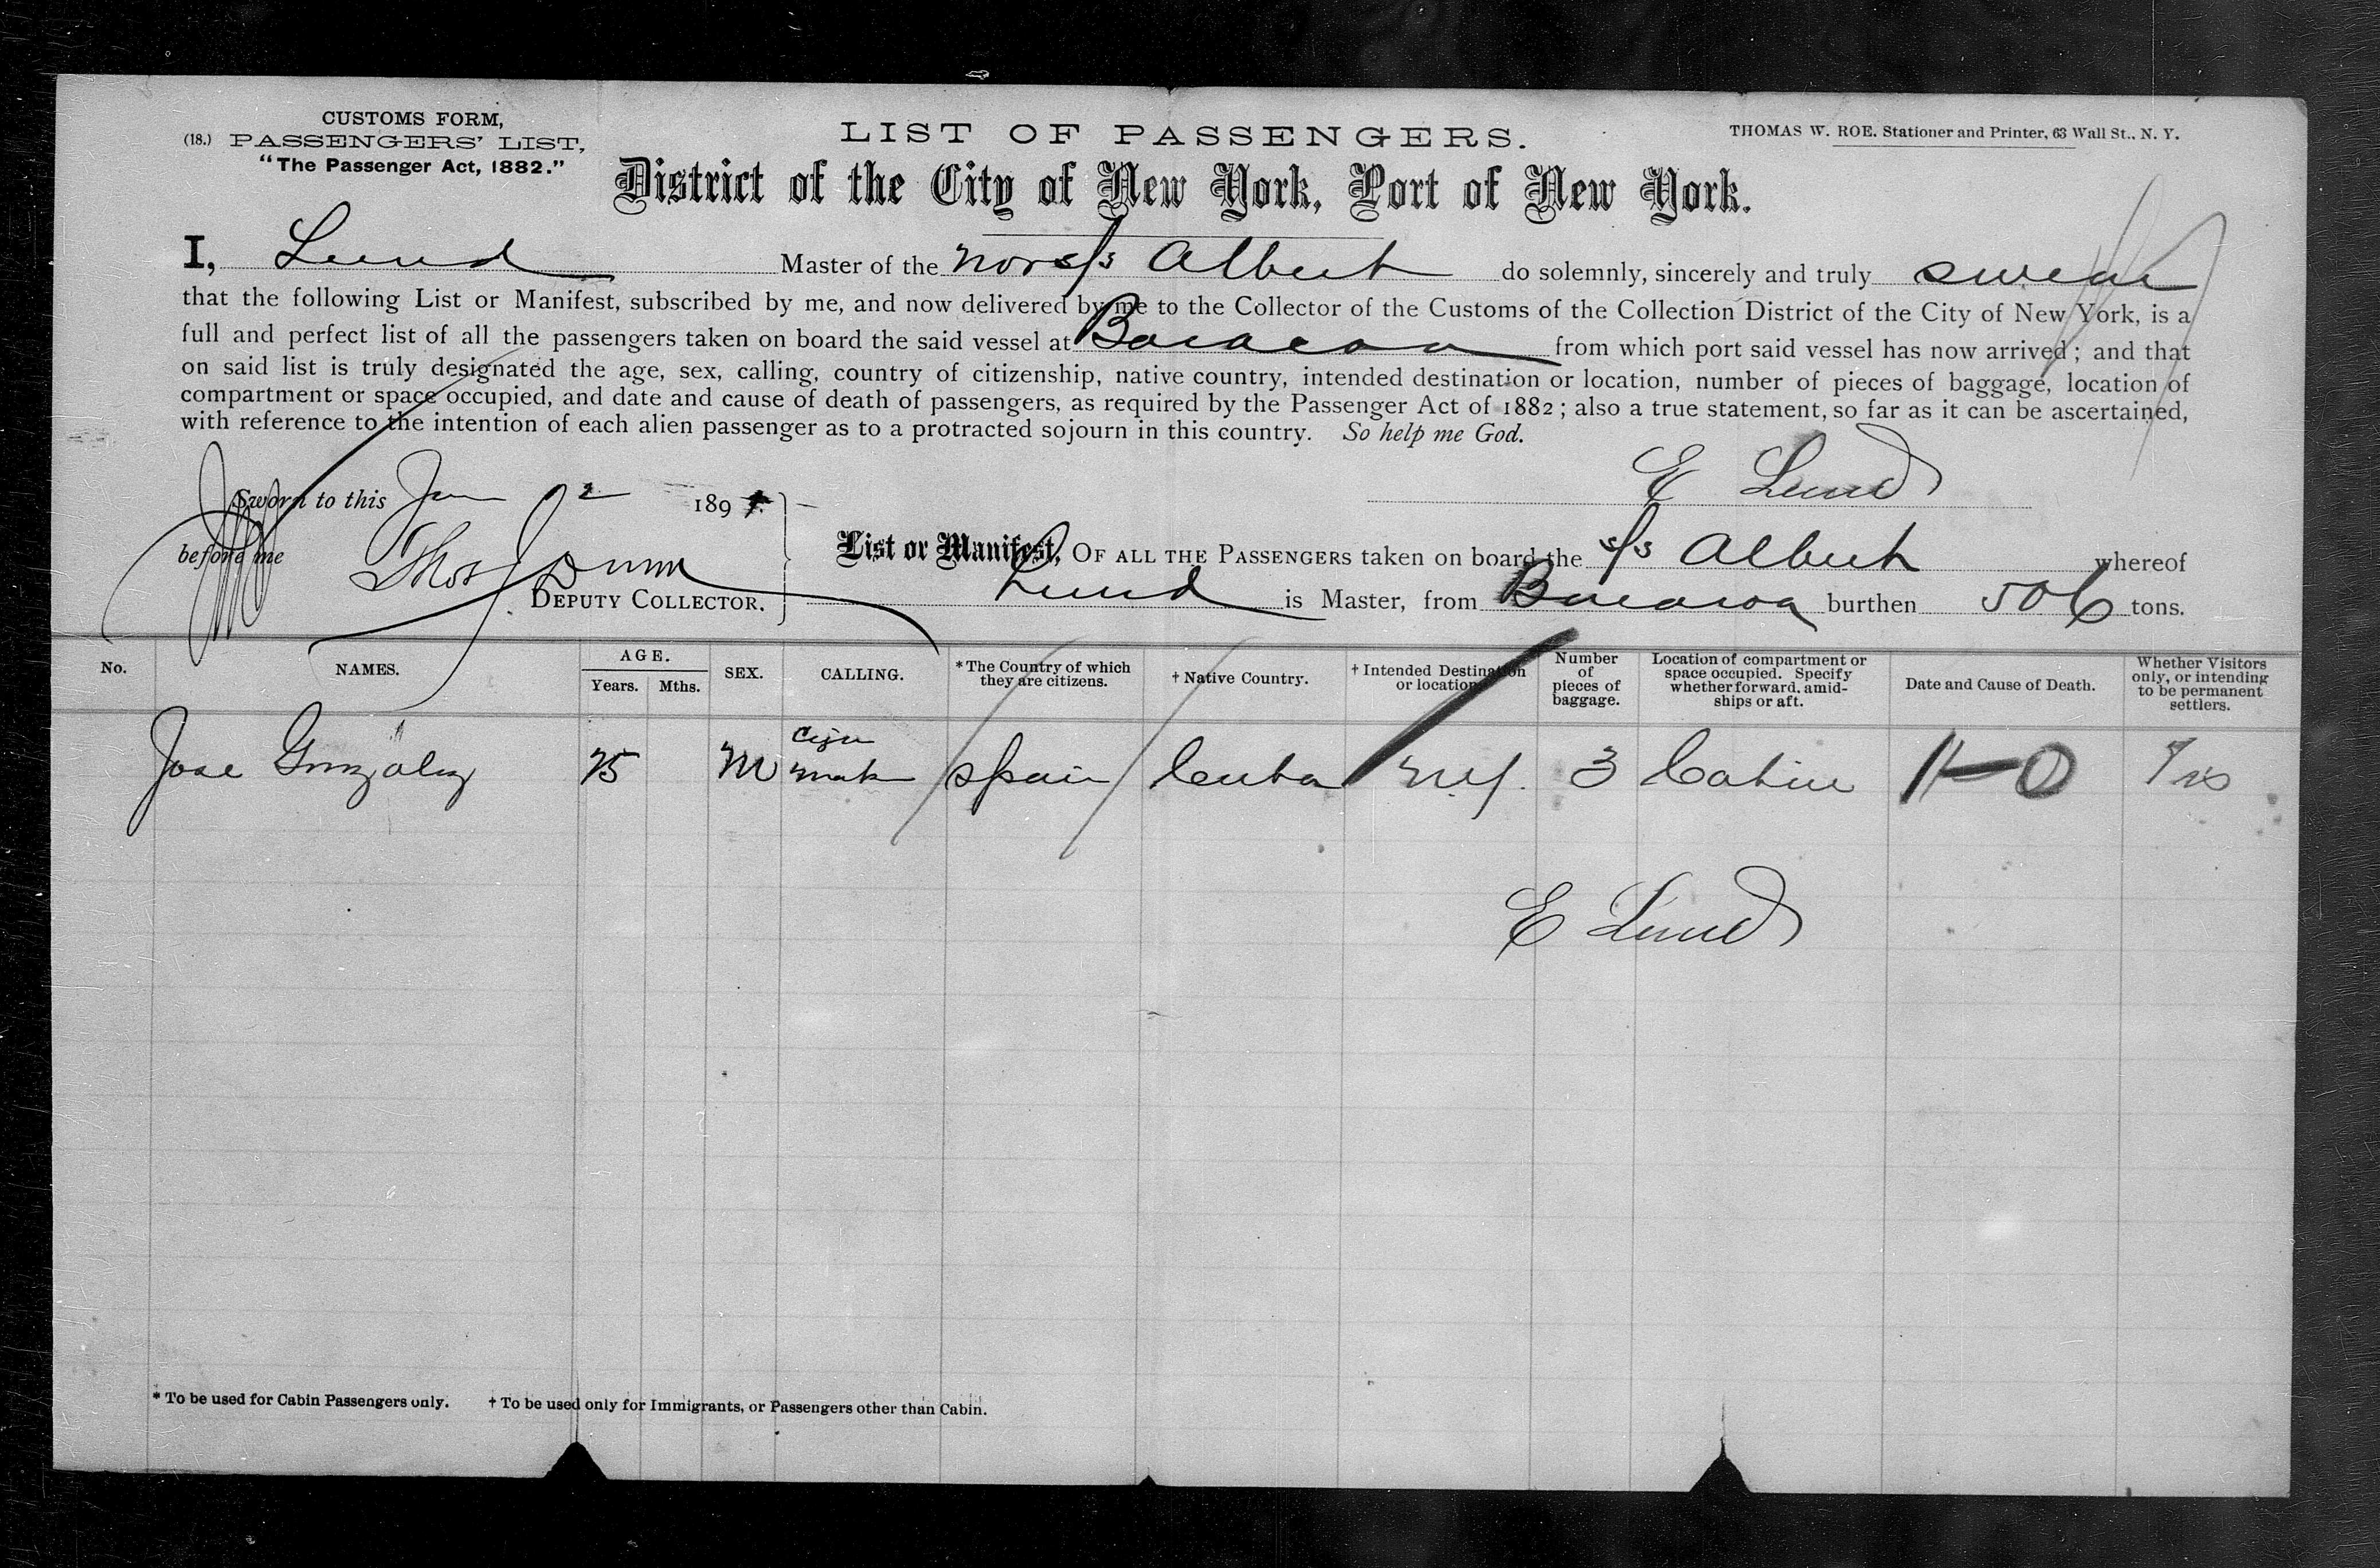 CUSTOMS FORM,
(18.) PASSENGERS' LIST,
"The Passenger Act, 1882."
LIST OF PASSENGERS.
THOMAS W. ROE. Stationer and Printer, 63 Wall St., N. Y.
District of the City of New York, Port of New York.
I, Lund Master of the Nor s/s Albert do solemnly, sincerely and truly swear
that the following List or Manifest, subscribed by me, and now delivered by me to the Collector of the Customs of the Collection District of the City of New York, is a
full and perfect list of all the passengers taken on board the said vessel at Baracoa from which port said vessel has now arrived; and that
on said list is truly designated the age, sex, calling, country of citizenship, native country, intended destination or location, number of pieces of baggage, location of
compartment or space occupied, and date and cause of death of passengers, as required by the Passenger Act of 1882; also a true statement, so far as it can be ascertained,
with reference to the intention of each alien passenger as to a protracted sojourn in this country. So help me God.
E Lund
Sworn to this Jan 2 189
before me Thos J Dunn
DEPUTY COLLECTOR.
List or Manifest, OF ALL THE PASSENGERS taken on board the s/s Albert whereof
Lund is Master, from Baracoa burthen 506 tons.
No. NAMES. AGE. Years. Mths. SEX. CALLING. *The Country of which they are citizens. † Native Country. † Intended Destination or location. Number of pieces of baggage. Location of compartment or space occupied. Specify whether forward, amidships or aft. Date and Cause of Death. Whether Visitors only, or intending to be permanent settlers.
Jose Gonzalez 25 M Cigar mak Spain Cuba N.Y. 3 Cabin 1-0 Yes
E Lund
* To be used for Cabin Passengers only. † To be used only for Immigrants, or Passengers other than Cabin.